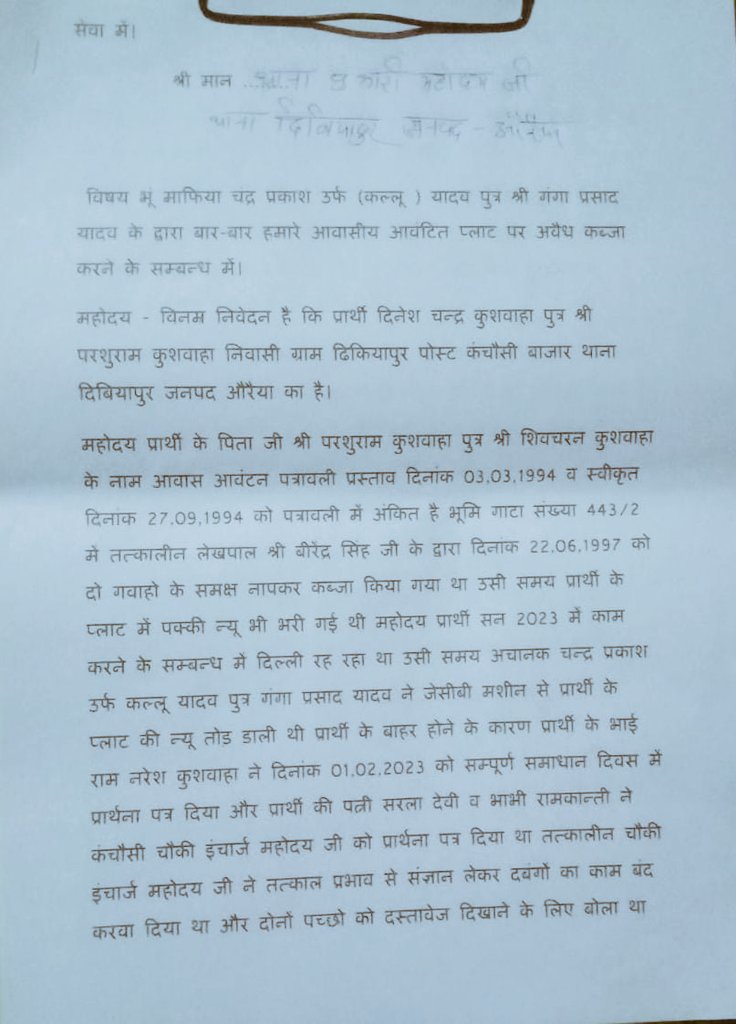 सेवा में।
श्री मान ......... प्रभारी महोदय जी
थाना दिबियापुर जनपद - औरैया
विषय भूं माफिया चंद्र प्रकाश उर्फ (कल्लू ) यादव पुत्र श्री गंगा प्रसाद
यादव के द्वारा बार-बार हमारे आवासीय आवंटित प्लाट पर अवैध कब्जा
करने के सम्बन्ध में।
महोदय - विनम निवेदन है कि प्रार्थी दिनेश चन्द्र कुशवाहा पुत्र श्री
परशुराम कुशवाहा निवासी ग्राम ढिकियापुर पोस्ट कंचौसी बाजार थाना
दिबियापुर जनपद औरैया का है।
महोदय प्रार्थी के पिता जी श्री परशुराम कुशवाहा पुत्र श्री शिवचरन कुशवाहा
के नाम आवास आवंटन पत्रावली प्रस्ताव दिनांक 03,03,1994 व स्वीकृत
दिनांक 27,09,1994 को पत्रावली में अंकित है भूमि गाटा संख्या 443/2
में तत्कालीन लेखपाल श्री बीरेंद्र सिंह जी के द्वारा दिनांक 22,06,1997 को
दो गवाहो के समक्ष नापकर कब्जा किया गया था उसी समय प्रार्थी के
प्लाट में पक्की न्यू भी भरी गई थी महोदय प्रार्थी सन 2023 में काम
करने के सम्बन्ध में दिल्ली रह रहा था उसी समय अचानक चन्द्र प्रकाश
उर्फ कल्लू यादव पुत्र गंगा प्रसाद यादव ने जेसीबी मशीन से प्रार्थी के
प्लाट की न्यू तोड डाली थी प्रार्थी के बाहर होने के कारण प्रार्थी के भाई
राम नरेश कुशवाहा ने दिनांक 01,02,2023 को सम्पूर्ण समाधान दिवस में
प्रार्थना पत्र दिया और प्रार्थी की पत्नी सरला देवी व भाभी रामकान्ती ने
कंचौसी चौकी इंचार्ज महोदय जी को प्रार्थना पत्र दिया था तत्कालीन चौकी
इंचार्ज महोदय जी ने तत्काल प्रभाव से संज्ञान लेकर दबंगों का काम बंद
करवा दिया था और दोनों पच्छो को दस्तावेज दिखाने के लिए बोला था